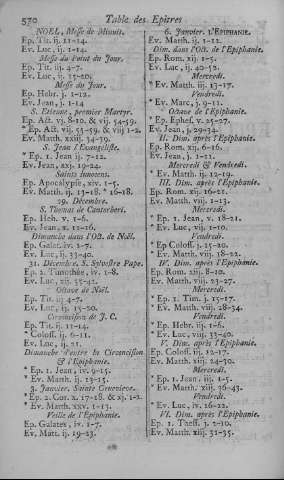 570 Table des Epitres
NOEL, Messe de Minuit.
Ep. Tit. ij. 11-14.
Ev. Luc, ij. 1-14.
Messe du Point du Jour.
Ep. Tit. iij. 4-7.
Ev. Luc, ij. 15-20.
Messe du Jour.
Ep. Hebr. j. 1-12.
Ev. Jean, j. 1-14
S. Etienne, premier Martyr.
Ep. Act. vj. 8-10. & vij. 54-59.
* Ep. Act. vij. 55-59. & viij 1-2.
Ev. Matth. xxiij. 34-39.
S. Jean l'Evangeliste.
* Ep. 1. Jean ij. 7-12.
Ev. Jean, xxj. 19-24.
Saints Innocens.
Ep. Apocalypse, xiv. 1-5.
Ev. Matth. ij. 13-18. * 16-18.
29. Décembre.
S. Thomas de Cantorberi.
Ep. Heb. v. 1-6.
Ev. Jean, x. 12-16.
Dimanche dans l'Oct. de Noël.
Ep. Galat. iv. 1-7.
Ev. Luc, ij. 33-40.
31. Décembre. S. Sylvestre Pape.
Ep. 2. Timothée, iv. 1-8.
Ev. Luc, xij. 35-42.
Octave de Noël.
Ep. Tit. iij 4-7.
Ev. Luc, ij. 15-20.
Circoncision de J. C.
Ep. Tit. ij. 11-14.
* Coloss. ij. 6-11.
Ev. Luc, ij. 21.
Dimanche d'entre la Circoncision
& l'Epiphanie.
* Ep. 1. Jean, iv. 9-15.
* Ev. Matth. ij. 13-15.
3. Janvier, Sainte Genevieve.
* Ep. 2. Cor. x. 17-18. & xj. 1-2.
* Ev. Matth. xxv. 1-13.
Veille de l'Epiphanie.
Ep. Galates, iv. 1-7.
Ev. Matt. ij. 19-23.
6. Janvier. L'EPIPHANIE.
Ev. Matth. ij. 1-12.
Dim. dans l'Oct. de l'Epiphanie.
Ep. Rom. xij. 1-5.
Ev. Luc, ij. 40-52.
Mercredi.
* Ev. Matth. iij. 13-17.
Vendredi.
* Ev. Marc, j. 9-11.
Octave de l'Epiphanie.
* Ep. Ephes. v. 25-27.
Ev. Jean, j. 29-34.
II. Dim. après l'Epiphanie.
Ep. Rom. xij. 6-16.
Ev. Jean, j. 1-11.
Mercredi & Vendredi.
Ev. Matth. ij. 12-19.
III. Dim. après l'Epiphanie.
Ep. Rom. xij. 16-21.
Ev. Matth. viij. 1-13.
Mercredi.
* Ep. 1. Jean, v. 18-21.
* Ev. Luc, vij. 1-10.
Vendredi.
* Ep Coloss. j. 25-20.
* Ev. Matth. viij. 18-22.
IV. Dim. après l'Epiphanie.
Ep. Rom. xiij. 8-10.
Ev. Matth. viij. 23-27.
Mercredi.
* Ep. 1. Tim. j. 15-17.
* Ev. Matth. viij. 28-34.
Vendredi.
* Ep. Hebr. iij. 1-6.
* Ev. Luc, viij. 33-40.
V. Dim. après l'Epiphanie.
Ep. Coloss. iij. 12-17.
Ev. Matth. xiij. 24-30.
Mercredi.
* Ep. 1. Jean, iij. 1-5.
* Ev. Matth. xiij. 36-43.
Vendredi.
* Ev. Luc, iv. 16-22.
VI. Dim. après l'Epiphanie.
Ep. 1. Thess. j. 2-10.
Ev. Matth. xiij. 31-35.